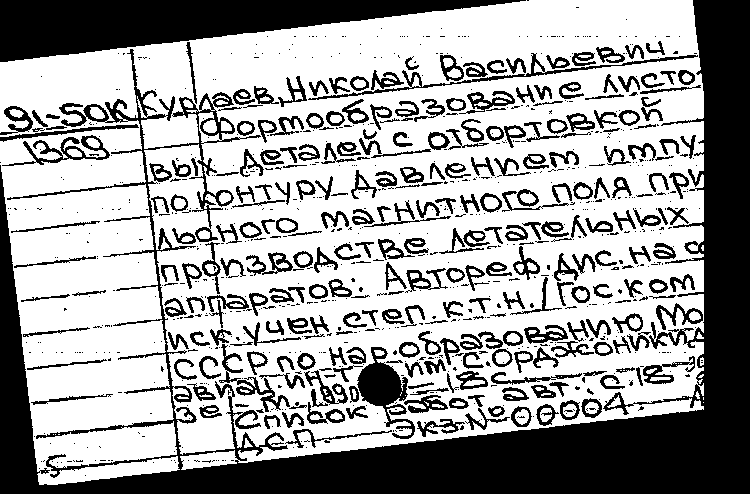 91-50К Курлаев, Николай Васильевич.
1369 Формообразование листо-
вых деталей с отбортовкой
по контуру давлением импу-
льсного магнитного поля при
производстве летательных
аппаратов: Автореф. дис. на со
иск. учен. степ. к.т.н. / Гос. ком
СССР по нар. образованию, Мо
авиац. ин-т им. С. Орджоникид
зе М., 1990 — 18 с
Список работ авт.: с. 18
ДСП. Экз. № 00004.
5